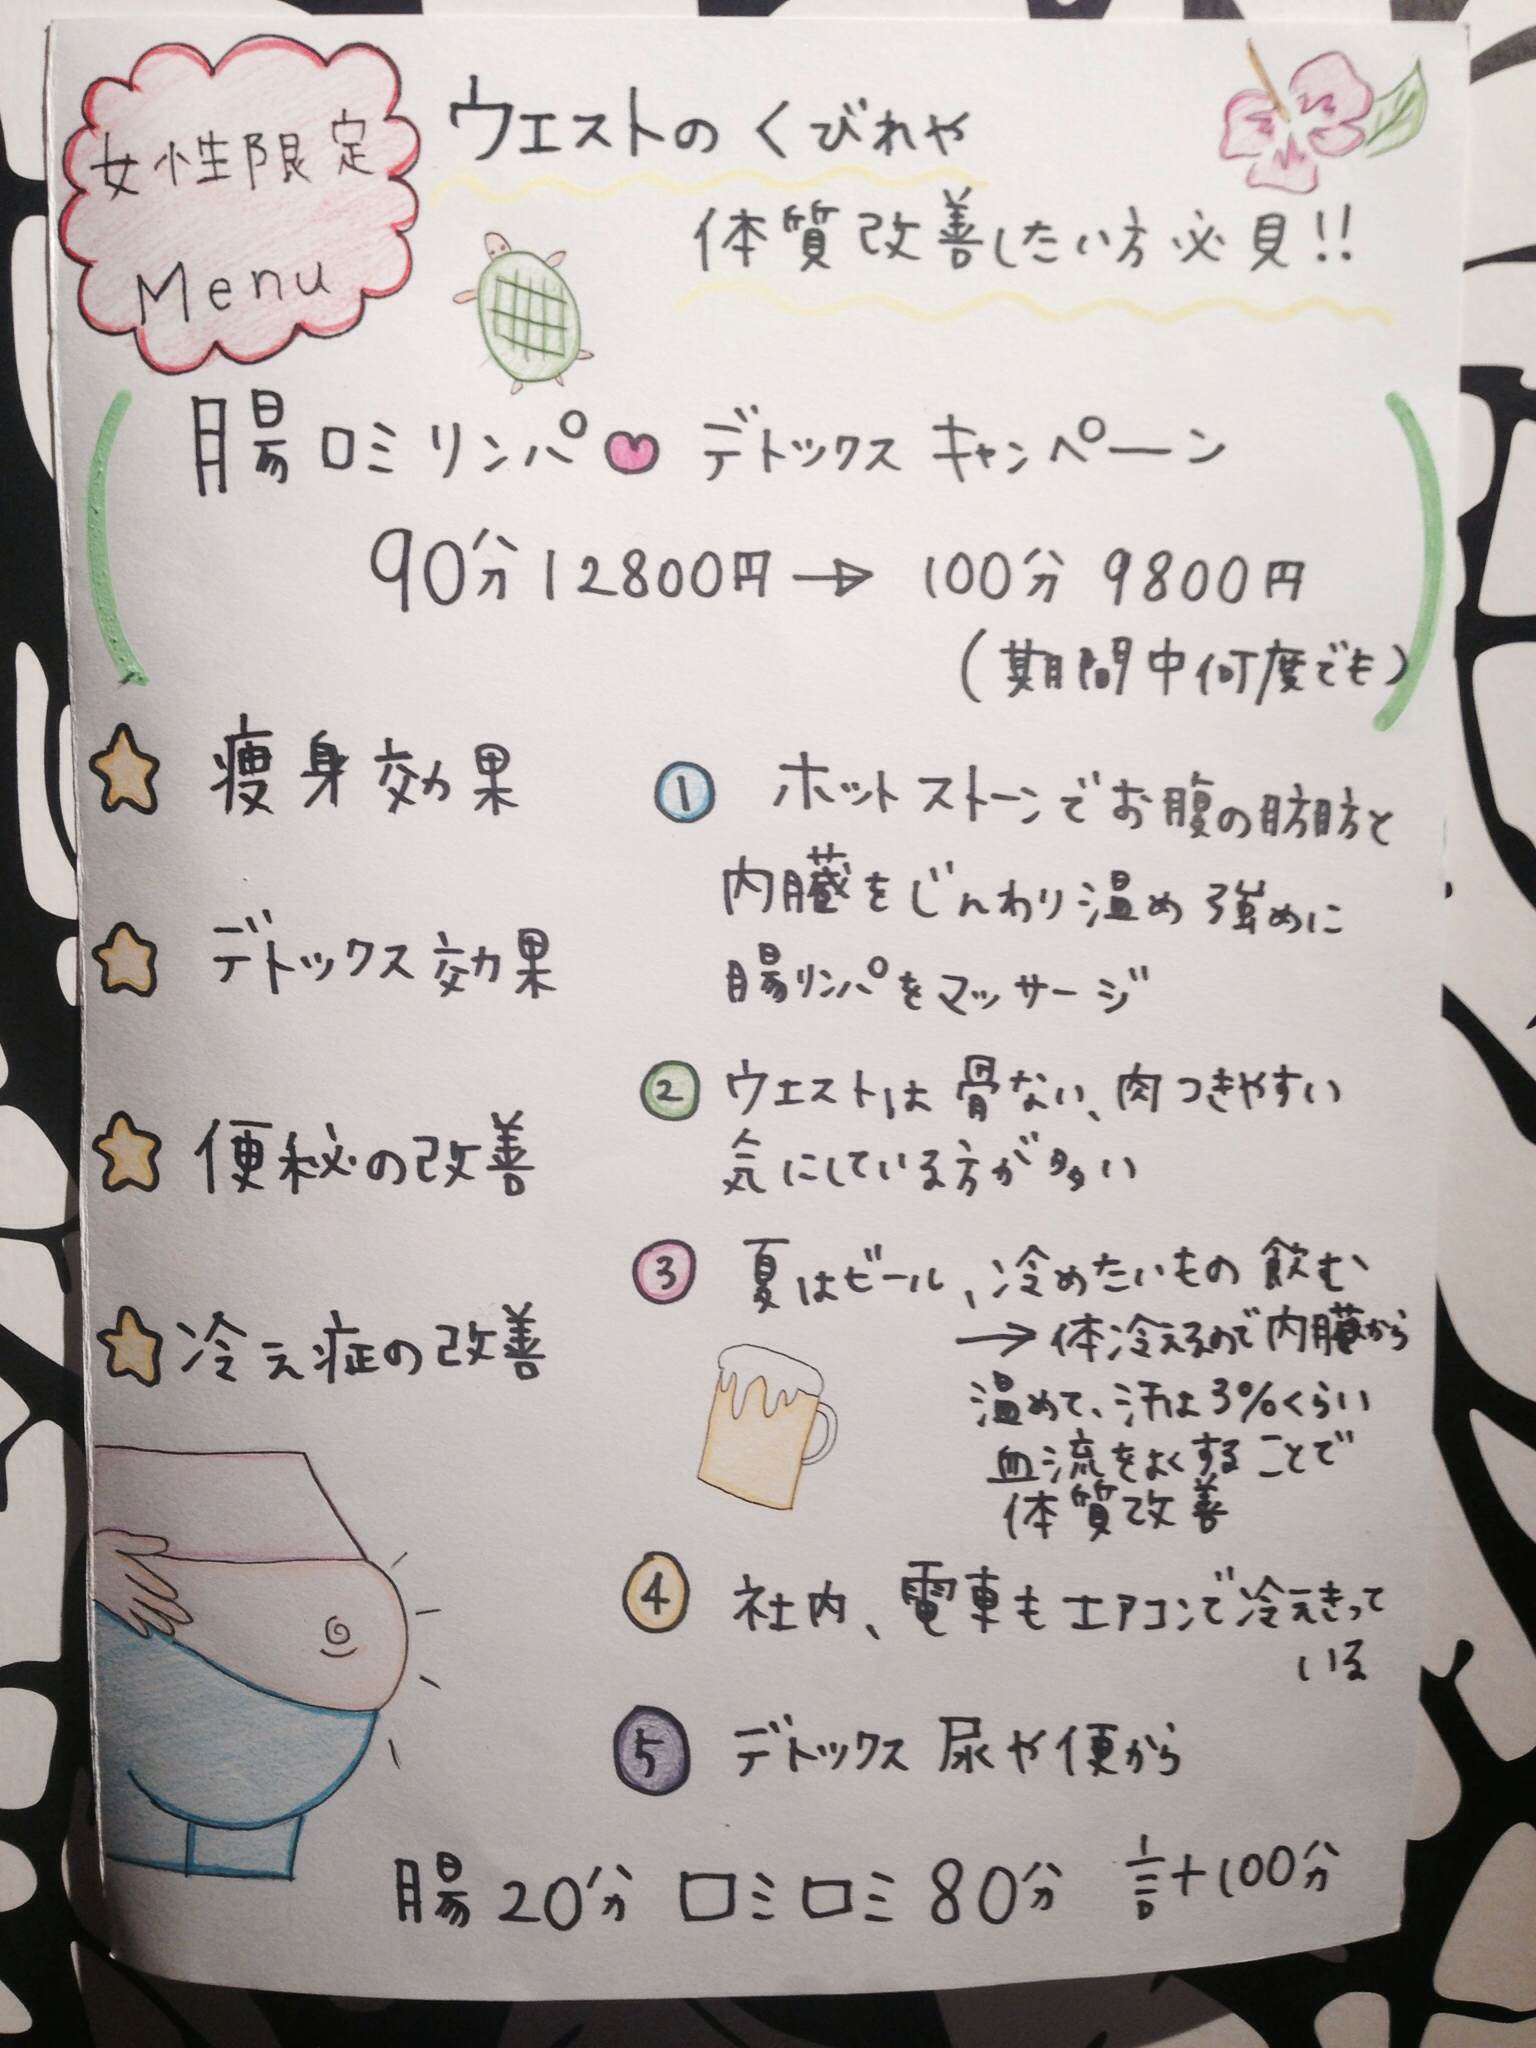 女性限定
Menu
ウエストのくびれや
体質改善したい方必見!!
腸ロミリンパ デトックスキャンペーン
90分12800円→100分 9800円
(期間中何度でも)
痩身効果
デトックス効果
便秘の改善
冷え症の改善
① ホットストーンでお腹の肪肪と
内臓をじんわり温め強めに
腸リンパをマッサージ
② ウエストは骨ない、肉つきやすい
気にしている方が多い
③ 夏はビール、冷めたいもの飲む
→体冷えるので内臓から
温めて、汗は3%くらい
血流をよくすることで
体質改善
④ 社内、電車もエアコンで冷えきって
いる
⑤ デトックス尿や便から
腸20分 ロミロミ80分 計+100分